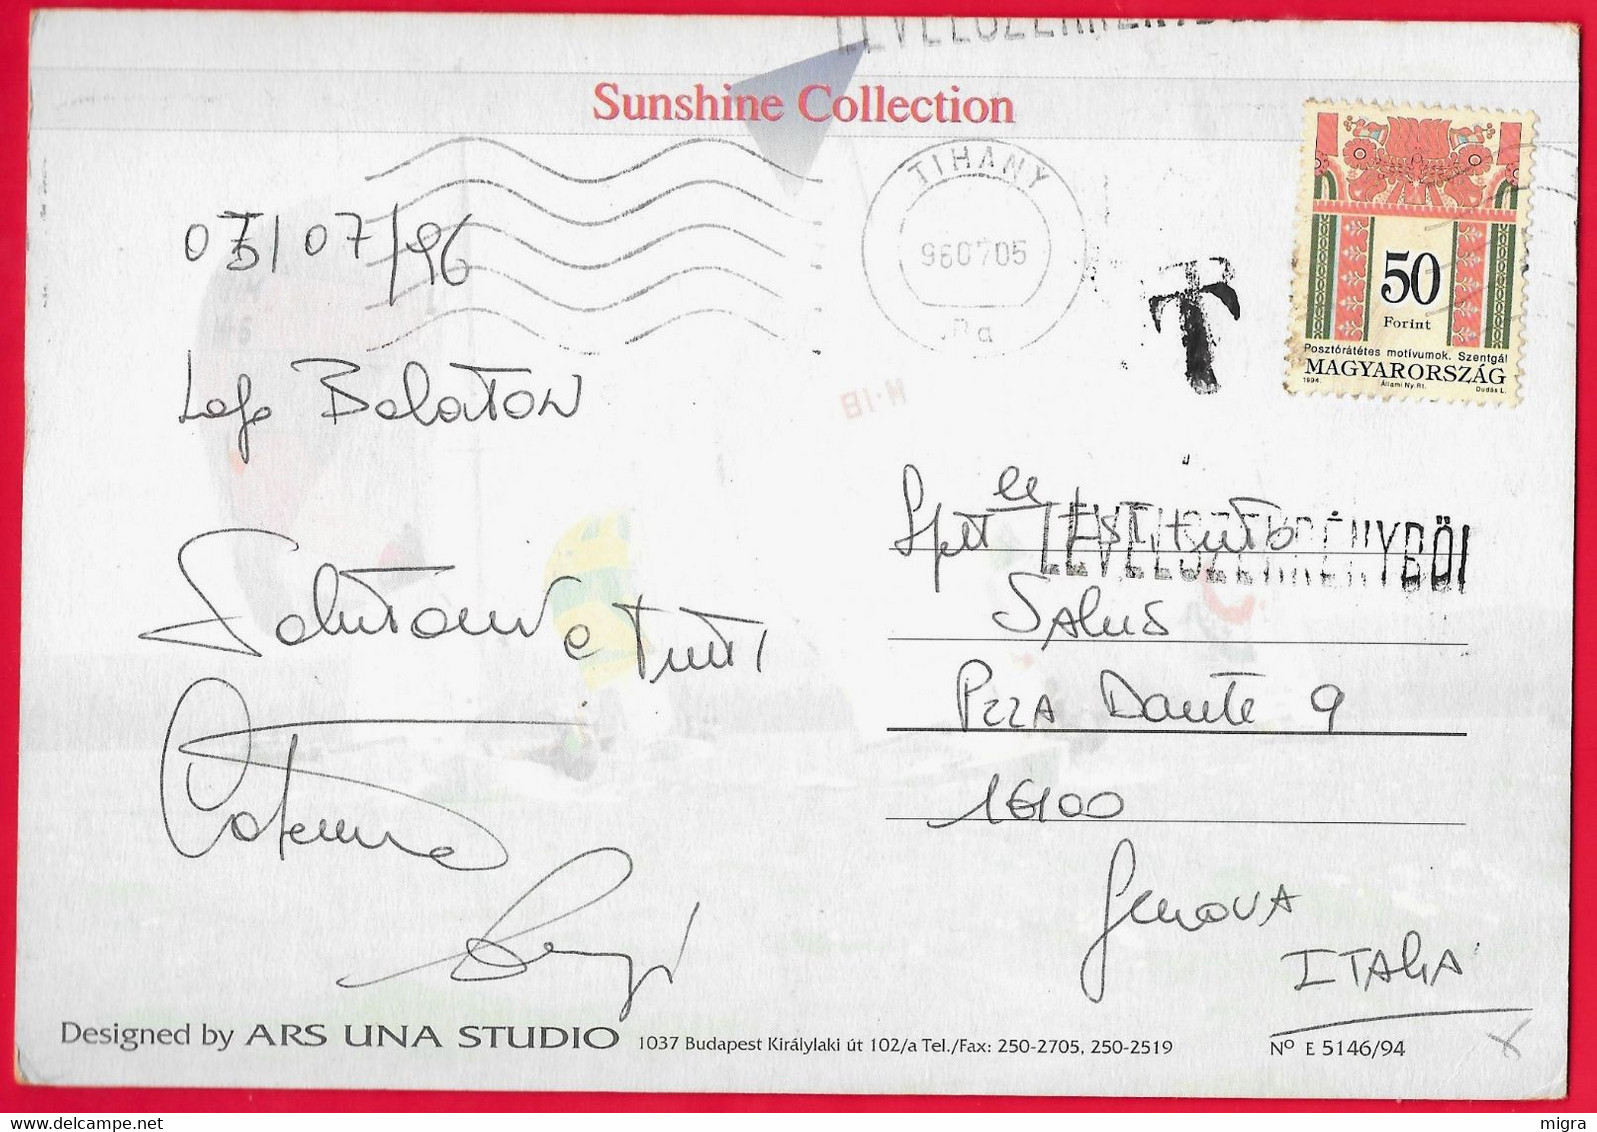 LEVÉLSZEKRÉNYBŐl
Sunshine Collection
TIHANY
960705
Da
T
50
Forint
Posztórátétes motívumok. Szentgál
MAGYARORSZÁG
1994.
Állami Ny.Rt.
Dudás L.
03/07/96
Lago Balaton
Salutoni a tutti
Caterina
Luigi
Spett le Istituto
LEVÉLSZEKRÉNYBŐl
Salus
Pzza Dante 9
16100
Genova
ITALIA
Designed by ARS UNA STUDIO 1037 Budapest Királylaki út 102/a Tel./Fax: 250-2705, 250-2519
Nº E 5146/94
migra